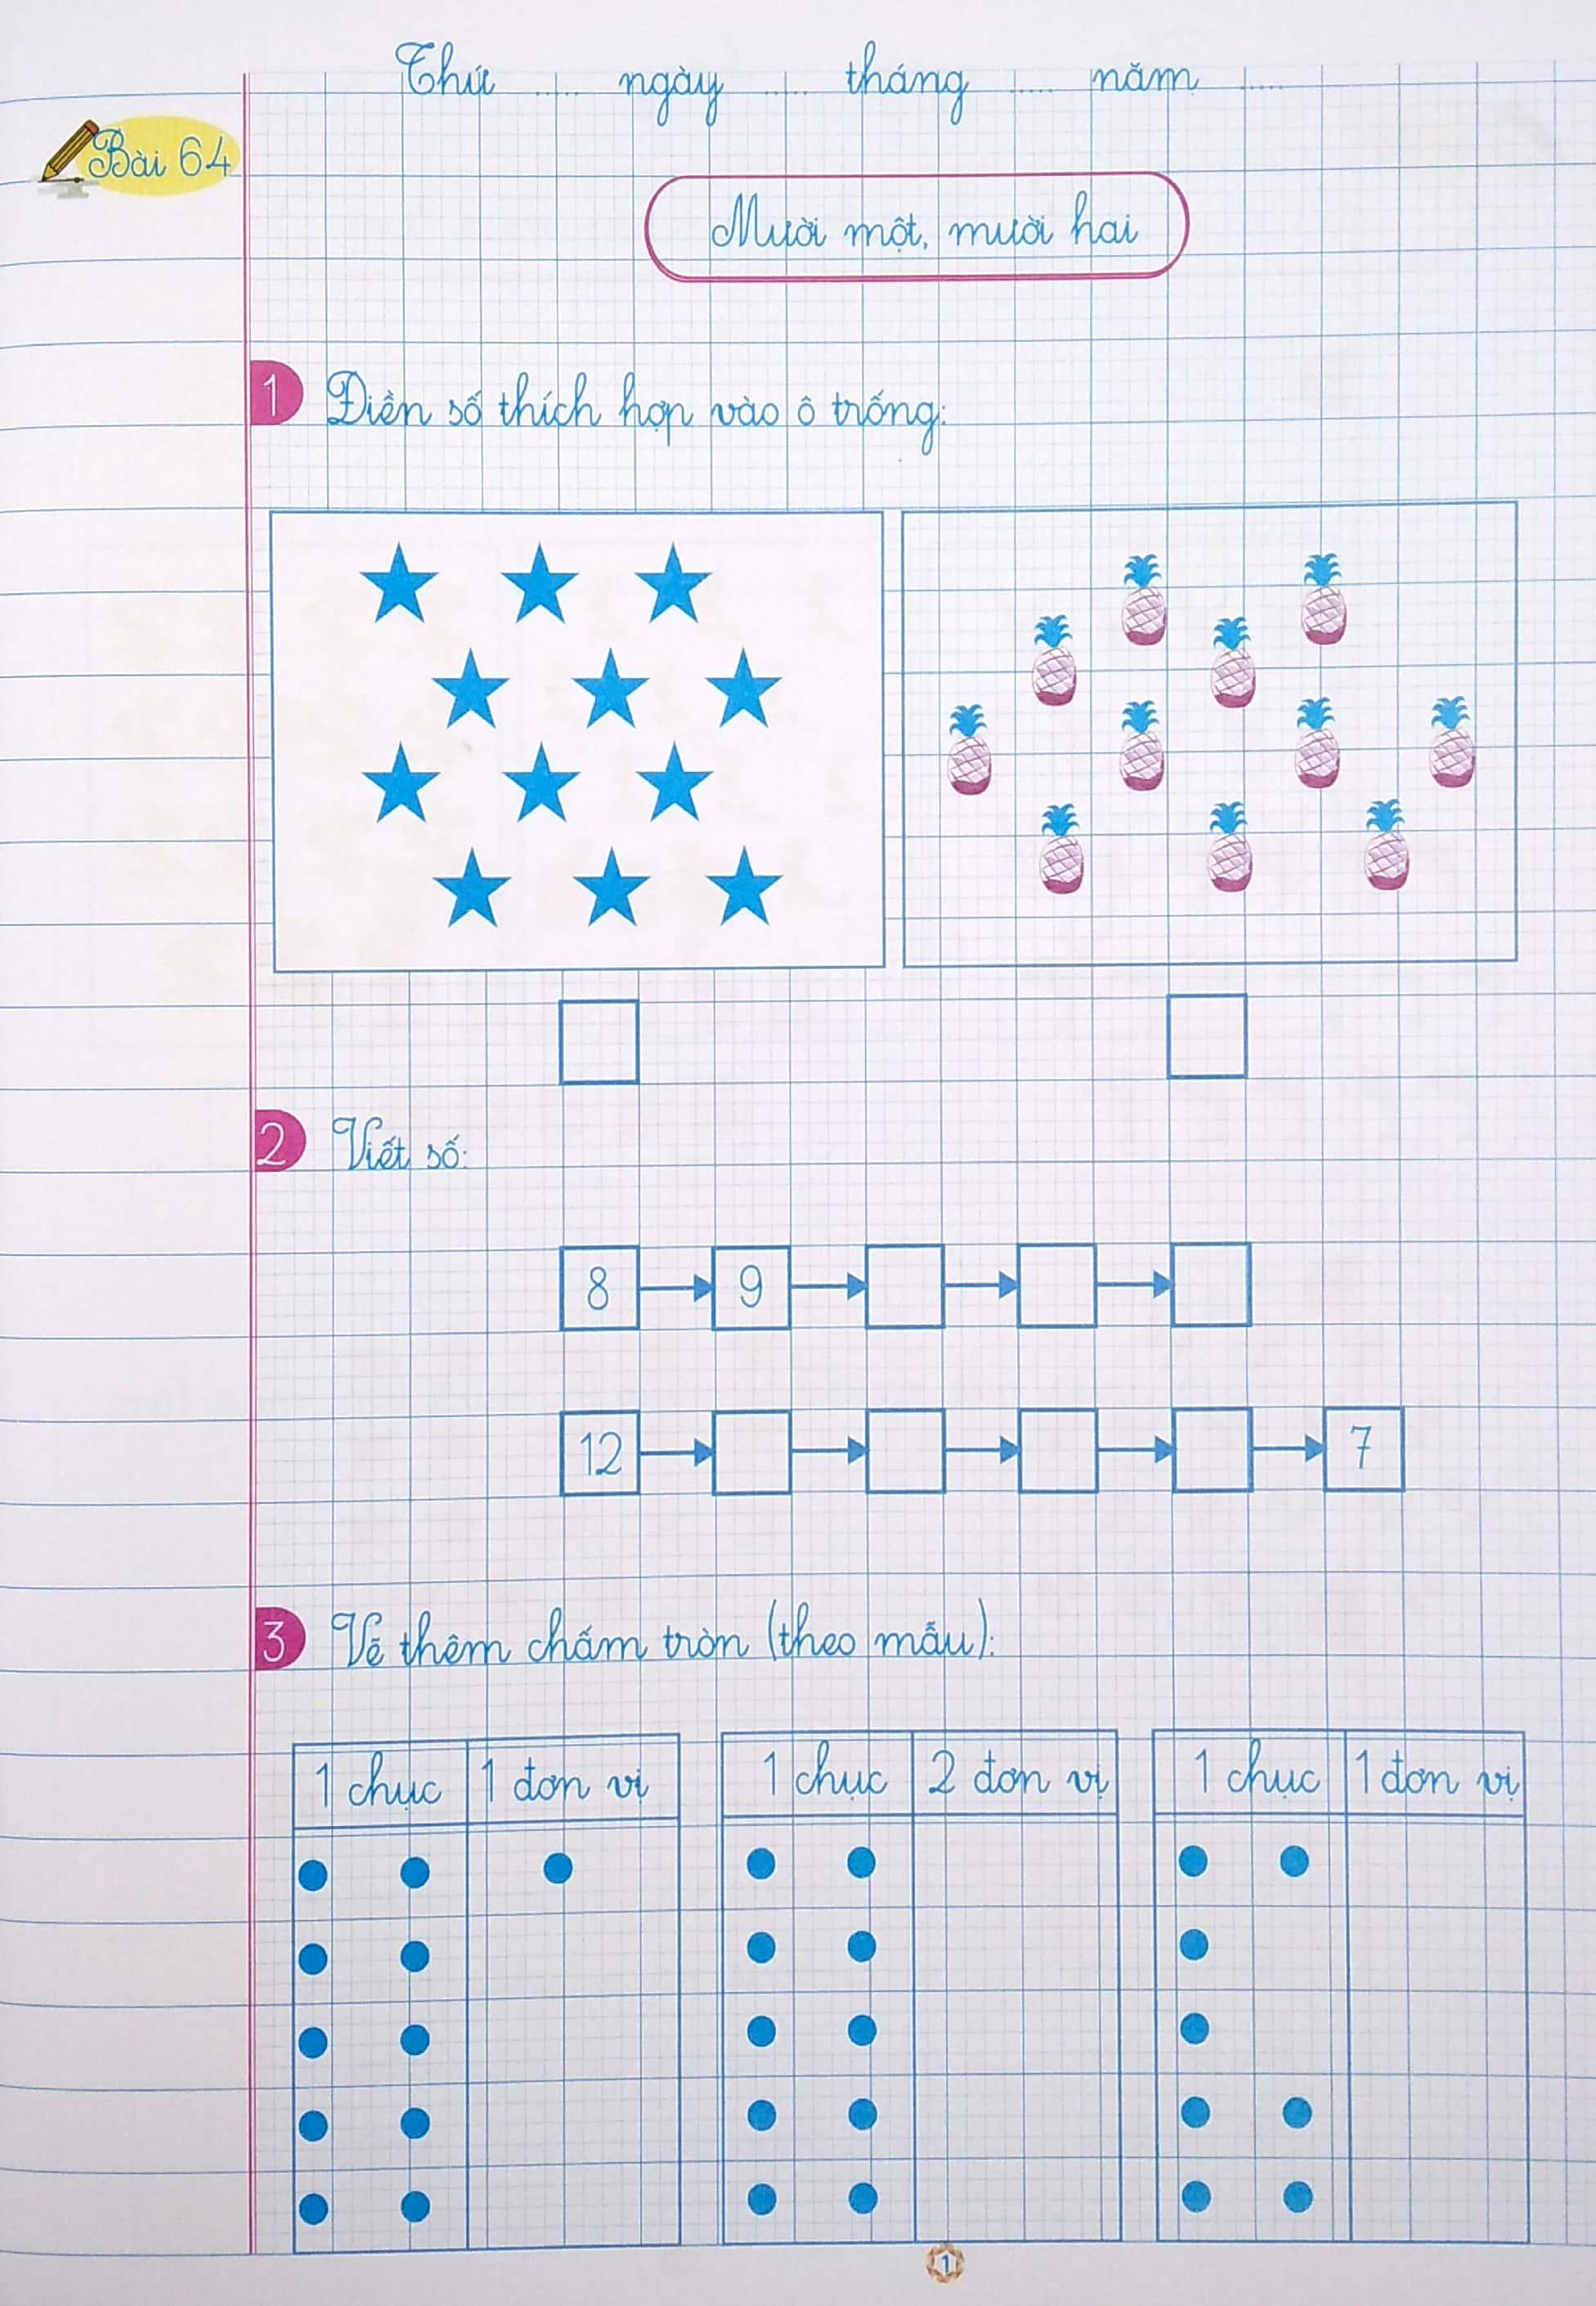 Thứ ..... ngày ..... tháng ..... năm .....
Bài 64
Mười một, mười hai
1 Điền số thích hợp vào ô trống:
2 Viết số:
8 9
12 7
3 Vẽ thêm chấm tròn (theo mẫu):
1 chục 1 đơn vị 1 chục 2 đơn vị 1 chục 1 đơn vị
1